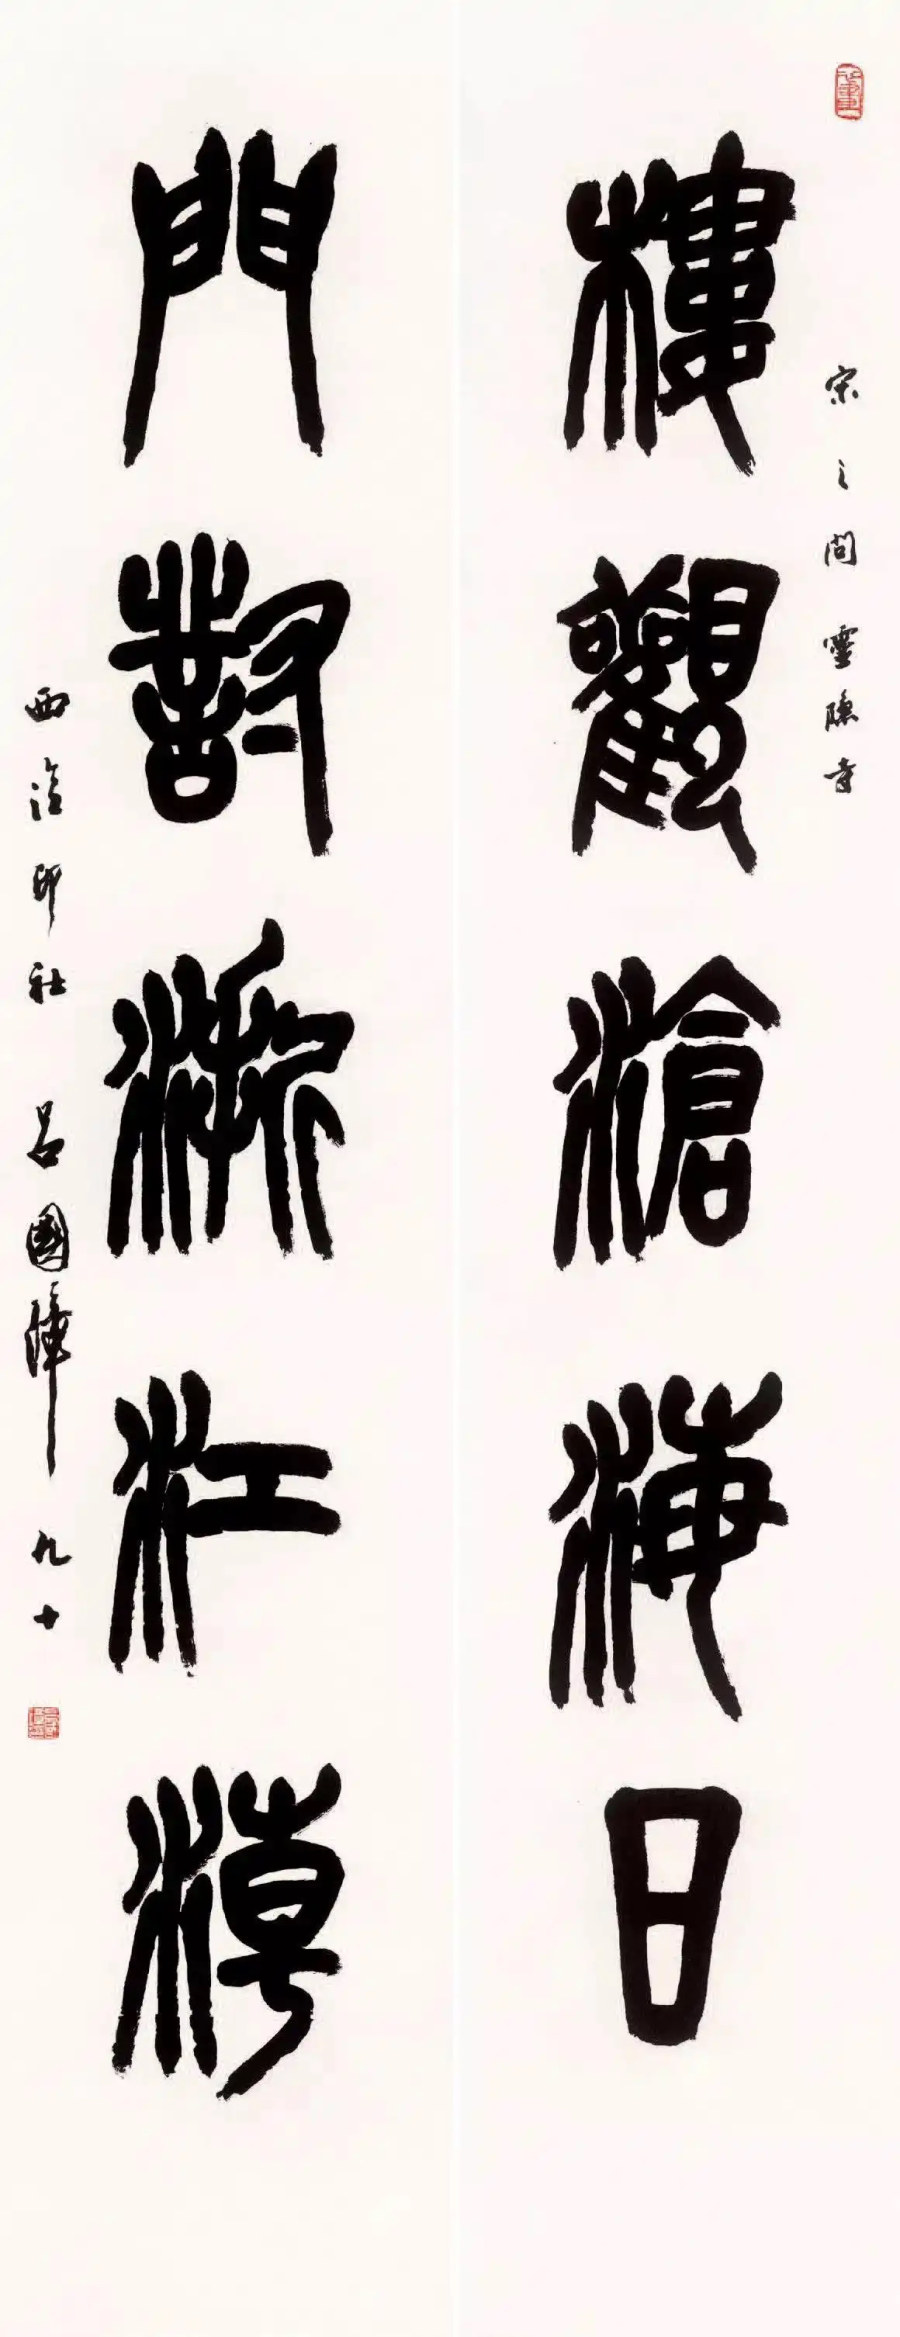 宋之問靈隱寺
樓觀滄海日
門對浙江潮
西泠印社 呂國璋 九十